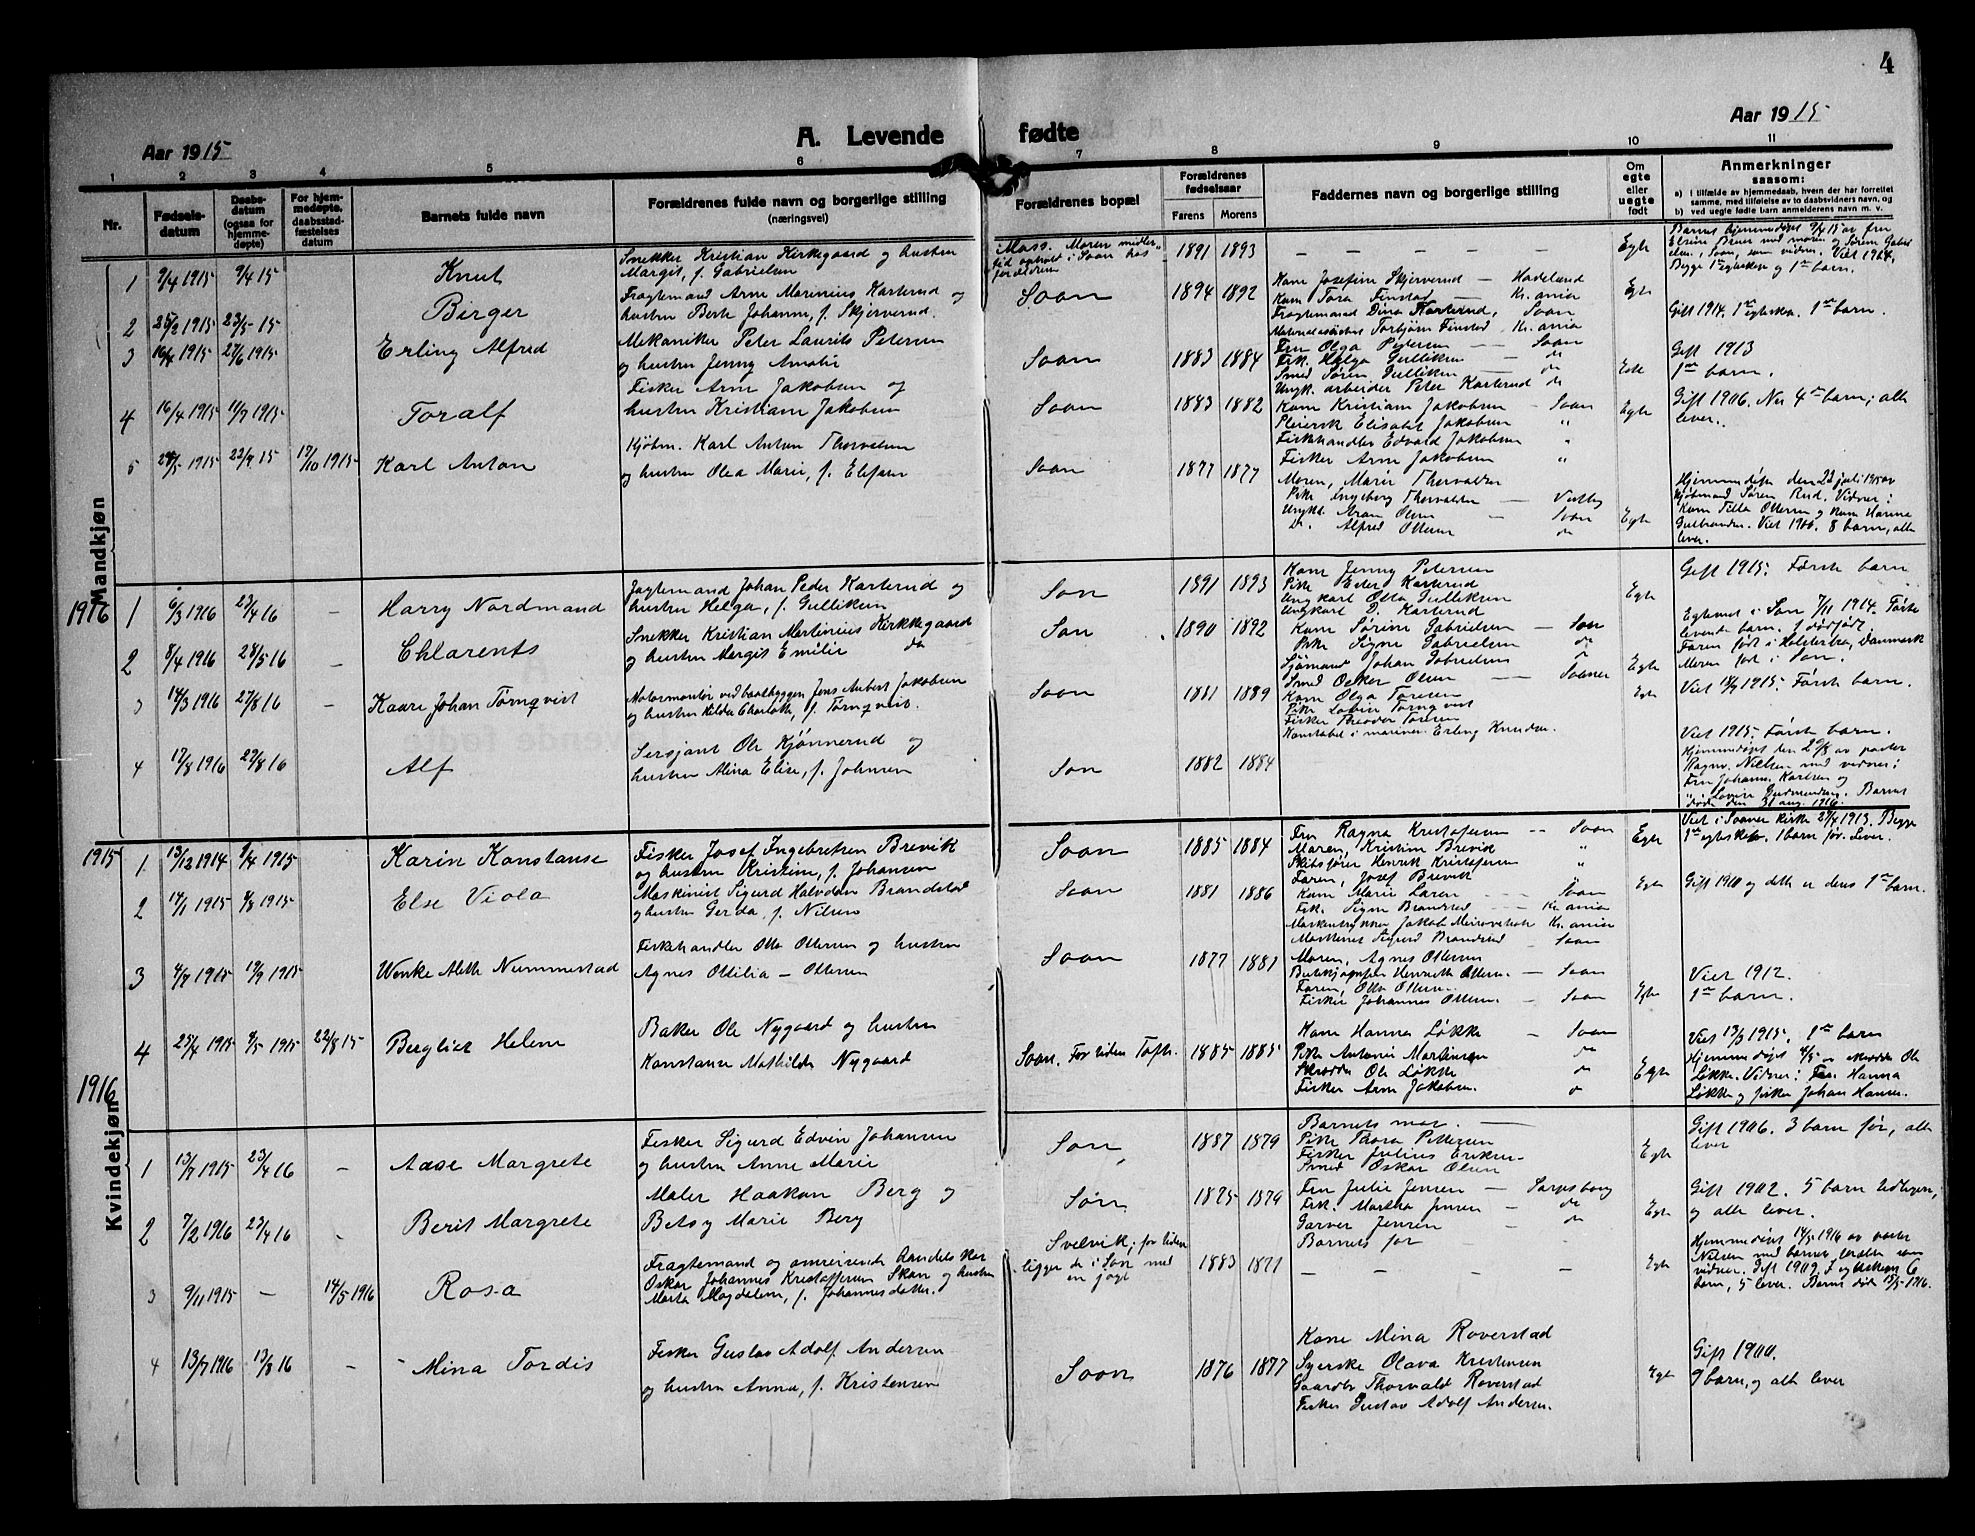 4
Aar 1915
A. Levende fødte
Aar 1915
1 2 3 4 5 6 7 8 9 10 11
Nr.
Fødsels-
datum
Daabs-
datum
(ogsaa for
hjemme-
døpte)
For hjem-
medøpte,
daabsstad-
fæstelses
datum
Barnets fulde navn
Forældrenes fulde navn og borgerlige stilling
(næringsvei)
Forældrenes bopæl
Forældrenes
fødselsaar
Farens Morens
Faddernes navn og borgerlige stilling
Om
egte
eller
uegte
født
Anmerkninger
saasom:
a) i tilfælde av hjemmedaab, hvem der har forrettet
samme, med tilføielse av to daabsvidners navn, og
b) ved uegte fødte barn anmelderens navn m. v.
Mandkjøn
1 9/4 1915 9/4 15 Knut
Snekker Kristian Kirkegaard og hustru
Margit, f. Gabrielsen
Moss. Moren midler-
tid ophold i Soon hos
forældrene
1891 1893 — — — — Egte
Barnet hjemmedøpt 9/4 15 av fru
som vidner. Viet 1914.
Begge 1ste egteskap og 1ste barn.
2 25/2 1915 23/5 15 Birger
Fragtemand Arne Marinius Karterud og
hustru Berte Johanne, f. Skjerverud.
Soon 1894 1892
Kone Josefine Skjerverud — Hadeland
Kone Tora Finstad — Kr.ania
Fragtemand Dina Karterud, Soon
Torbjørn Finstad — Kr.ania
Egte
Gift 1914. 1ste egteska. 1ste barn.
3 16/4 1915 27/6 1915 Erling Alfred
Mekaniker Peter Laurits Petersen
og hustru Jenny Amalie
Soon 1883 1884
Fru Olga Petersen — Soon
Frk. Helga Gulliksen — do
Smed Søren Gulliksen — do
Ungk. arbeider Peter Karterud do
Egte
Gift 1913
1ste barn.
4 16/4 1915 11/7 1915 Toralf
Fisker Arne Jakobsen og
hustru Kristiane Jakobsen
Soon 1883 1882
Kone Kristiane Jakobsen — Soon
Pleiersk Elisabet Jakobsen "
Fiskehandler Edvald Jakobsen "
Fisker Arne Jakobsen "
Egte
Gift 1906. Nu 4de barn; alle
lever.
5 24/5 1915 22/7 15 17/10 1915 Karl Anton
Kjøbm. Karl Anton Thorvaldsen
og hustru Olea Marie, f. Elefsen
Soon 1877 1877
Moren, Marie Thorvaldsen
Pike Ingeborg Thorvaldsen — Vestby
Ungkl. Aron Olsen — Soon
D. Alfred Ottersen do
Egte
Hjemmedøpt den 22 juli 1915 av
kjøbmand Søren Rud. Vidner:
Kone Tilla Ottersen og kone Hanna
Gulbrandsen. Viet 1900. 8 barn, alle
lever.
1916
1 6/3 1916 23/4 16 — Harry Nordmand
Jagtemand Johan Peder Karterud og
hustru Helga, f. Gulliksen
Son 1891 1893
Kone Jenny Petersen
Pike Ester Karterud
Ungkarl Otto Gulliksen
Ungkarl D. Karterud
Egte
Gift 1915. Første barn
2 8/4 1916 28/5 16 — Chlarents
Snekker Kristian Martinius Kirkkegaard
og hustru Margit Emilie do
Son 1890 1892
Kone Sørine Gabrielsen — Son
Pike Signe Gabrielsen do
Sjømand Johan Gabrielsen
Smed Oskar Olsen — Sooner
Egte
Egteviet i Son 7/11 1914. Første
levende barn. 1 dødfødt.
Faren født i Holstebro, Danmark
Moren født i Son.
3 14/3 1916 27/8 16 — Kaare Johan Tørnqvist
Motormontør ved baatbyggeri Jens Anbert Jakobsen
og hustru Hilda Charlotte, f. Tørnqvist.
Soon 1881 1889
Kone Olga Toresen
Pike Lovise Tørnqvist
Fisker Theodor Toresen
Konstabel i marinen Erling Knudsen.
Egte
Viet 14/9 1915. Første barn.
4 17/8 1916 29/8 16 Alf
Sersjant Ole Kjønnerud og
hustru Alina Elise, f. Johnsen
Son 1882 1884
Viet 1915. Første barn.
Hjemmedøpt den 29/8 av pastor
Ragnv. Nielsen med vidner:
Fru Johanne Karlsen og
" Lovise Gudmundsen. Barnet
døde den 31 aug. 1916.
Kvindekjøn
1915
1 13/12 1914 9/4 1915 Karin Konstanse
Fisker Josef Ingebretsen Brevik
og hustru Kristine, f. Johansen
Soon 1885 1884
Fru Ragna Kristofersen — Soon
Moren, Kristine Brevik "
Skibsfører Henrik Kristofersen "
Faren, Josef Brevik
Egte
Viet i Sooner kirke 27/4 1913. Begge
1ste egteskab. 1 barn før. Lever.
2 17/1 1915 8/8 1915 Else Viola
Maskinist Sigurd Halvdan Brandstad
og hustru Gerda, f. Nilsen
Soon 1881 1886
Kone Marie Larsen — Soon
Frk. Signe Brandstad — Kr.ania
Jakob Kr.ania
Maskinist Sigurd Brandstad — Soon
Egte
Gift 1910 og dette er deres 1ste barn.
3 4/7 1915 19/9 1915 Wenke Alette Nummestad
Fiskehandler Otto Ottersen og hustru
Agnes Ottilia — Ottersen
Soon 1877 1881
Moren, Agnes Ottersen
Henriette Ottersen — Soon
Faren, Otto Ottersen.
Fisker Johannes Ottersen — Soon
Egte
Viet 1912.
1ste barn.
4 25/4 1915 9/5 1915 22/8 15 Bergliot Helene
Baker Ole Nygaard og hustru
Konstanse Mathilde Nygaard
Soon. For tiden Tofte. 1885 1885
Kone Hanna Løkke — Soon
Pike Antonie Martinsen do
Skrædder Ole Løkke do
Fisker Arne Jakobsen do
Egte
Viet 13/3 1915. 1ste barn
Hjemmedøpt 9/5 av skrædder Ole
Løkke. Vidner: Fru Hanna
Løkke og fisker Johan Hansen.
1916
1 13/7 1915 23/4 16 — Aase Margrete
Fisker Sigurd Edvin Johansen
og hustru Anne Marie
Son 1887 1879
Barnets mor. —
Pike Thora Pettersen
Fisker Julius Eriksen
Smed Oskar Olsen
Egte
Gift 1906. 3 barn før, alle
lever
2 7/2 1916 23/4 16 - Berit Margrete
Maler Haakon Berg og
Betsy Marie Berg
Son 1875 1879
Fru Julie Jensen — Sarpsborg
Frk. Martha Jensen — do
Garver Jensen - do
Barnets far -
Egte
Gift 1902. 5 barn
og alle lever.
3 9/11 1915 — 14/5 1916 Rosa
Fragtemand og omreisende handelskar
Oskar Johannes Kristoffersen Skau og hustru
Marta Magdalene, f. Johannesdatter.
Svelvik; for tiden
ligger de i Son med
en jagt
1883 1871 — — — — Egte
Hjemmedøpt 14/5 1916 av pastor
Nielsen med barnets forældre som
vidner. Gift 1909. I egteskap 6
barn, 5 lever. Barnet død 15/5 1916.
4 13/7 1916 13/8 16 — Mina Tordis
Fisker Gustav Adolf Andersen
og hustru Anna, f. Kristensen
Soon 1876 1877
Kone Mina Roverstad
Syerske Olava Kristensen
Gaardbr. Thorvald Roverstad
Fisker Gustav Adolf Andersen.
Egte
Gift 1900.
9 barn, og alle lever